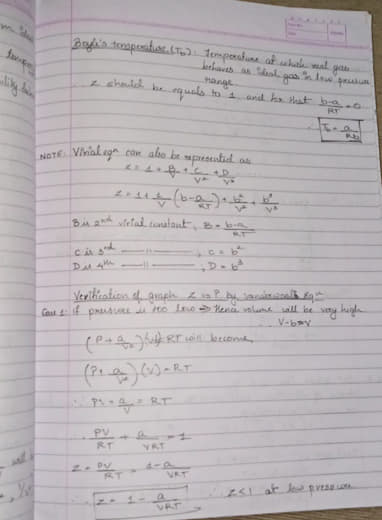 Boyle's temperature (Tb): Temperature at which real gas
behaves as ideal gas in low pressure
range
Z should be equals to 1 and for that b-a/RT = 0
Tb = a/Rb
NOTE: Virial eqn can also be represented as
Z = 1 + B/V + C/V² + D/V³
Z = 1 + 1/V (b - a/RT) + b²/V² + b³/V³
B is 2nd virial constant, B = b-a/RT
C is 3rd —"— , C = b²
D is 4th —"— ; D = b³
Verification of graph Z vs P by vanderwaals Eqn
Case 1: if pressure is too low ⇒ Hence volume will be very high
∴ V-b≈V
(P + a/V²) (V) RT will become,
(P + a/V²) (V) = RT
∴ PV + a/V = RT
∴ PV/RT + a/VRT = 1
Z = PV/RT = 1 - a/VRT
∴ Z = 1 - a/VRT ∴ Z<1 at low pressure